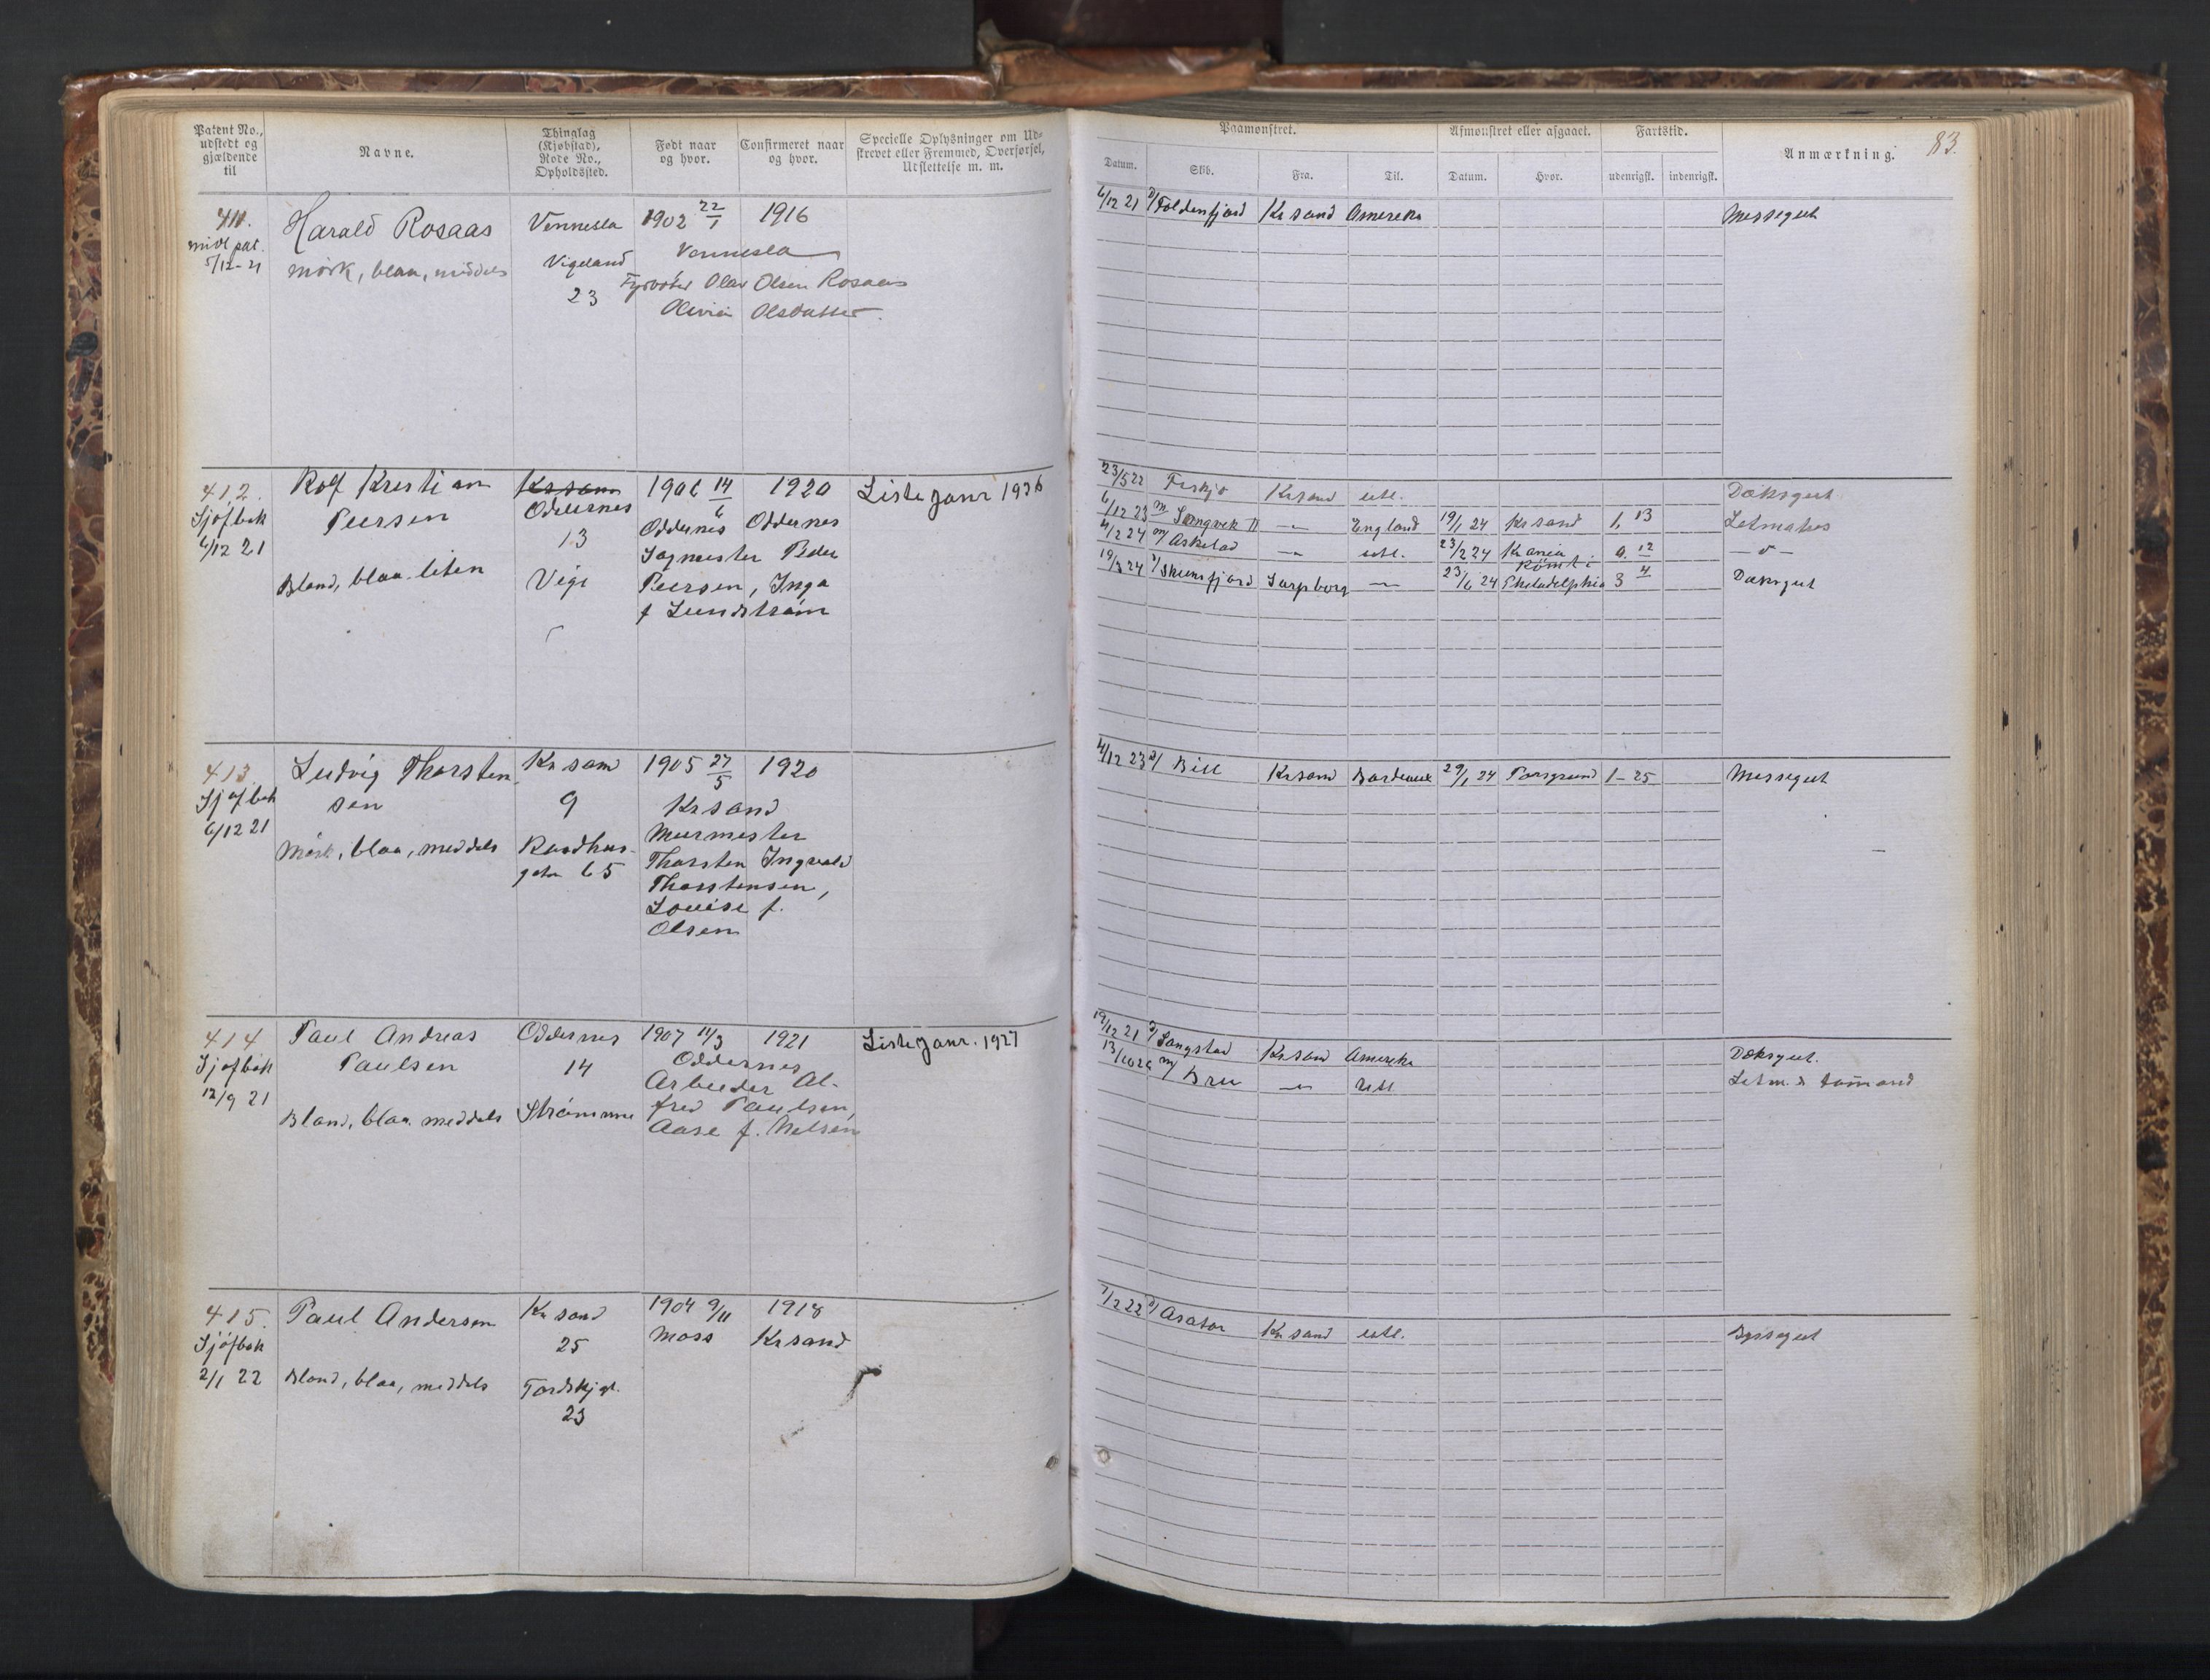 Patent No., udstedt og gjældende til
Navne.
Thinglag (Kjøbstad), Rode No., Opholdssted.
Født naar og hvor.
Confirmeret naar og hvor.
Specielle Oplysninger om Udskrevet eller Fremmed, Overførsel, Udslettelse m. m.
411.
midl pat.
5/12-21
Harald Rosaas
mörk, blaa, middels
Vennesla
Vigeland
23
1902 22/1
1916
Vennesla
Fyrböter Olav Olsen Rosaas
Olsdatter.
412.
Sjøfbok
6/12 21
Rolf Kristian
Peersen
Blond, blaa. liten
Krsand
Oddernes
13
Vige
1906 14/6
1920
Oddernes
Oddernes
Sagmester Peder
Peersen, Inga
f Lundström
Liste janr 1926
413.
Sjøfbok
6/12 21
Ludvig Thorsten
sen
Mörk, blaa, middels
Krsand
9
Raadhus-
gaten 65
1905 27/5
1920
Krsand
Murmester
Thorsten Ingvald
Thorstensen,
Louise f.
Olsen
414
Sjøfbok
12/9 21
Paul Andreas
Paulsen
Blond, blaa. middels
Oddernes
14
Strömme
1907 11/3
1921
Oddernes
Arbeider Al-
fred Paulsen,
Aase f. Nelsen
Liste janr. 1927
415.
Sjøfbok
2/1 22
Paul Andersen
Blond, blaa, middels
Kr sand
25
Tordskj gt.
23
1904 9/11
1918
Moss
Krsand
Paamønstret.
Afmønstret eller afgaaet.
Fartstid.
Anmærkning.
83.
Datum.
Skib.
Fra.
Til.
Datum.
Hvor.
udenrigsk.
indenrigsk.
6/12 21 D/ Foldenfjord Kr sand Amerika Messegut
23/5 22 Krsand utl. Dæksgut
6/12 23 m/ Songvik II —"— England 19/1 24 Kr sand 1, 13 Letmatros
4/2 24 m/ Askelad —"— utl. 23/2 24 Krania 0. 12 — " —
19/3 24 D/ Skiensfjord Sarpborg —"— 23/6 24 Philadelphia 3 4 Dæksgut
Römt i
4/12 23 D/ Bill Krsand Bordeaux 29/1 24 Porsgrund 1-25 Messegut
19/12 21 D/ Songstad Krsand Amerika Dæksgut.
13/10 26 m/ Bru —"— Utl Letm. & tömand
7/2 22 D/ Arator Kr sand utl. Byssegut